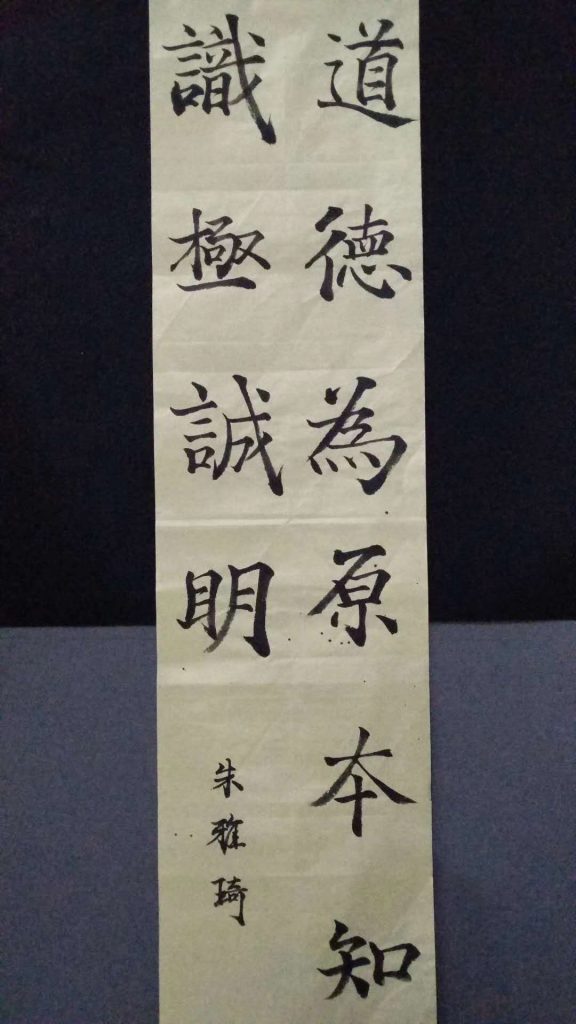 道德為原本知
識極誠明
朱雅琦